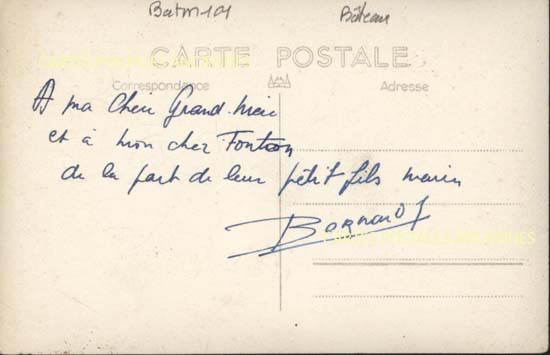 Batm-101 Bâteau
CARTE POSTALE
Correspondance Adresse
A ma Cheri Grand-Mere
et à mon cher Tonton
de la part de leur petit fils marin
Bernard